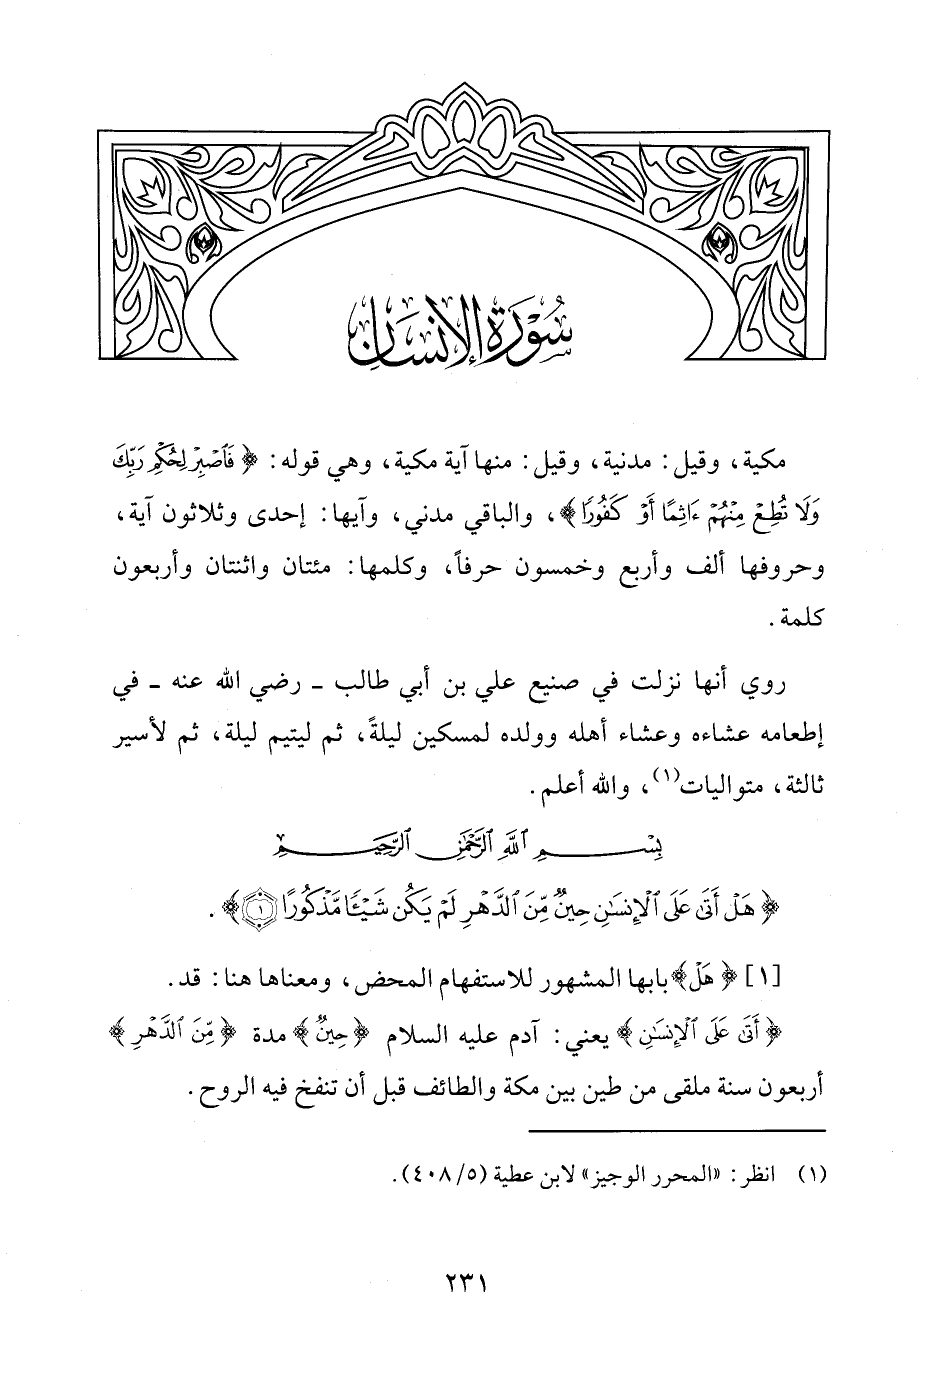 سُورَةُ الإِنْسَانِ
مكية، وقيل: مدنية، وقيل: منها آية مكية، وهي قوله: ﴿فَٱصْبِرْ لِحُكْمِ رَبِّكَ
وَلَا تُطِعْ مِنْهُمْ ءَاثِمًا أَوْ كَفُورًا﴾، والباقي مدني، وآيها: إحدى وثلاثون آية،
وحروفها ألف وأربع وخمسون حرفاً، وكلمها: مئتان واثنتان وأربعون
كلمة.
روي أنها نزلت في صنيع علي بن أبي طالب ـ رضي الله عنه ـ في
إطعامه عشاءه وعشاء أهله وولده لمسكين ليلةً، ثم ليتيم ليلة، ثم لأسير
ثالثة، متواليات(١)، والله أعلم.
بِسْمِ ٱللَّهِ ٱلرَّحْمَٰنِ ٱلرَّحِيمِ
﴿هَلْ أَتَىٰ عَلَى ٱلْإِنسَٰنِ حِينٌ مِّنَ ٱلدَّهْرِ لَمْ يَكُن شَيْـًٔا مَّذْكُورًا ١﴾.
[١] ﴿هَلْ﴾ بابها المشهور للاستفهام المحض، ومعناها هنا: قد.
﴿أَتَىٰ عَلَى ٱلْإِنسَٰنِ﴾ يعني: آدم عليه السلام ﴿حِينٌ﴾ مدة ﴿مِّنَ ٱلدَّهْرِ﴾
أربعون سنة ملقى من طين بين مكة والطائف قبل أن تنفخ فيه الروح.
(١) انظر: «المحرر الوجيز» لابن عطية (٥/ ٤٠٨).
٢٣١